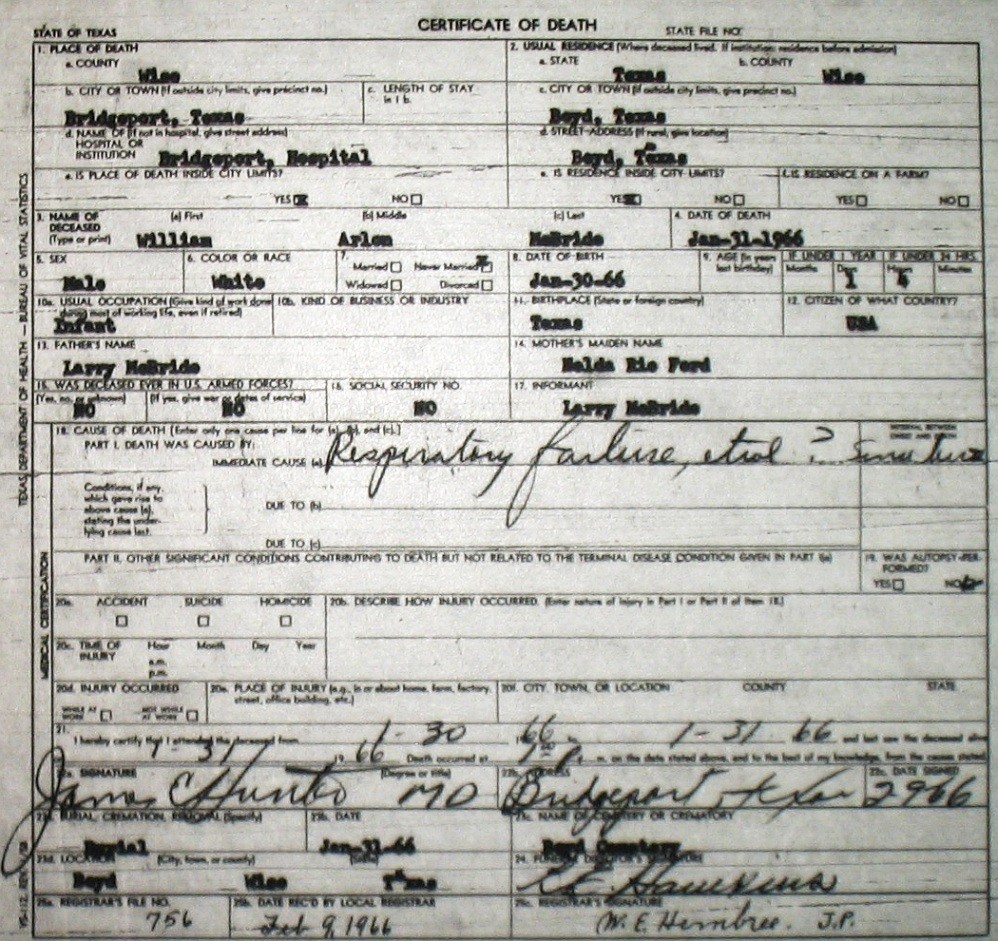 CERTIFICATE OF DEATH
STATE OF TEXAS
STATE FILE NO.
TEXAS DEPARTMENT OF HEALTH — BUREAU OF VITAL STATISTICS
1. PLACE OF DEATH
a. COUNTY
Wise
2. USUAL RESIDENCE (Where deceased lived. If institution: residence before admission)
a. STATE
Texas
b. COUNTY
Wise
b. CITY OR TOWN (If outside city limits, give precinct no.)
Bridgeport, Texas
c. LENGTH OF STAY
in 1 b.
c. CITY OR TOWN (If outside city limits, give precinct no.)
Boyd, Texas
d. NAME OF (If not in hospital, give street address)
HOSPITAL OR
INSTITUTION Bridgeport, Hospital
d. STREET ADDRESS (If rural, give location)
Boyd, Texas
e. IS PLACE OF DEATH INSIDE CITY LIMITS?
YES NO
e. IS RESIDENCE INSIDE CITY LIMITS?
YES NO
f. IS RESIDENCE ON A FARM?
YES NO
3. NAME OF
DECEASED
(Type or print)
(a) First
William
(b) Middle
Arlon
(c) Last
McBride
4. DATE OF DEATH
Jan-31-1966
5. SEX
Male
6. COLOR OR RACE
White
7.
Married Never Married X
Widowed Divorced
8. DATE OF BIRTH
Jan-30-66
9. AGE (In years
last birthday)
IF UNDER 1 YEAR
Months Days
1
IF UNDER 24 HRS.
Hours Minutes
4
10a. USUAL OCCUPATION (Give kind of work done
during most of working life, even if retired)
Infant
10b. KIND OF BUSINESS OR INDUSTRY
11. BIRTHPLACE (State or foreign country)
Texas
12. CITIZEN OF WHAT COUNTRY?
USA
13. FATHER'S NAME
Larry McBride
14. MOTHER'S MAIDEN NAME
Nelda Rie Ford
15. WAS DECEASED EVER IN U.S. ARMED FORCES?
(Yes, no, or unknown)
NO
(If yes, give war or dates of service)
NO
16. SOCIAL SECURITY NO.
NO
17. INFORMANT
Larry McBride
MEDICAL CERTIFICATION
18. CAUSE OF DEATH [Enter only one cause per line for (a), (b), and (c).]
INTERVAL BETWEEN
ONSET AND DEATH
PART I. DEATH WAS CAUSED BY:
IMMEDIATE CAUSE (a) Respiratory failure, etiol ? Since birth
Conditions, if any,
which gave rise to
above cause (a),
stating the under-
lying cause last.
DUE TO (b)
DUE TO (c)
PART II. OTHER SIGNIFICANT CONDITIONS CONTRIBUTING TO DEATH BUT NOT RELATED TO THE TERMINAL DISEASE CONDITION GIVEN IN PART I(a)
19. WAS AUTOPSY PER-
FORMED?
YES NO
20a. ACCIDENT SUICIDE HOMICIDE
20b. DESCRIBE HOW INJURY OCCURRED. (Enter nature of injury in Part I or Part II of item 18.)
20c. TIME OF
INJURY
Hour Month Day Year
a.m.
p.m.
20d. INJURY OCCURRED
WHILE AT
WORK
NOT WHILE
AT WORK
20e. PLACE OF INJURY (e.g., in or about home, farm, factory,
street, office building, etc.)
20f. CITY, TOWN, OR LOCATION COUNTY STATE
21.
I hereby certify that I attended the deceased from 1-30 1966 1-31 66 and last saw the deceased alive
1-31 1966 Death occurred at m. on the date stated above, and to the best of my knowledge, from the causes stated.
22a. SIGNATURE (Degree or title)
James C Hunter MD
22b. ADDRESS
Bridgeport, Texas
22c. DATE SIGNED
2966
23a. BURIAL, CREMATION, REMOVAL (Specify)
Burial
23b. DATE
Jan-31-66
23c. NAME OF CEMETERY OR CREMATORY
Boyd Cemetery
23d. LOCATION (City, town, or county) (State)
Boyd Wise Texas
24. FUNERAL DIRECTOR'S SIGNATURE
Hawkins
25a. REGISTRAR'S FILE NO.
756
25b. DATE REC'D BY LOCAL REGISTRAR
Feb 9, 1966
25c. REGISTRAR'S SIGNATURE
W. E. Hembree. J.P.